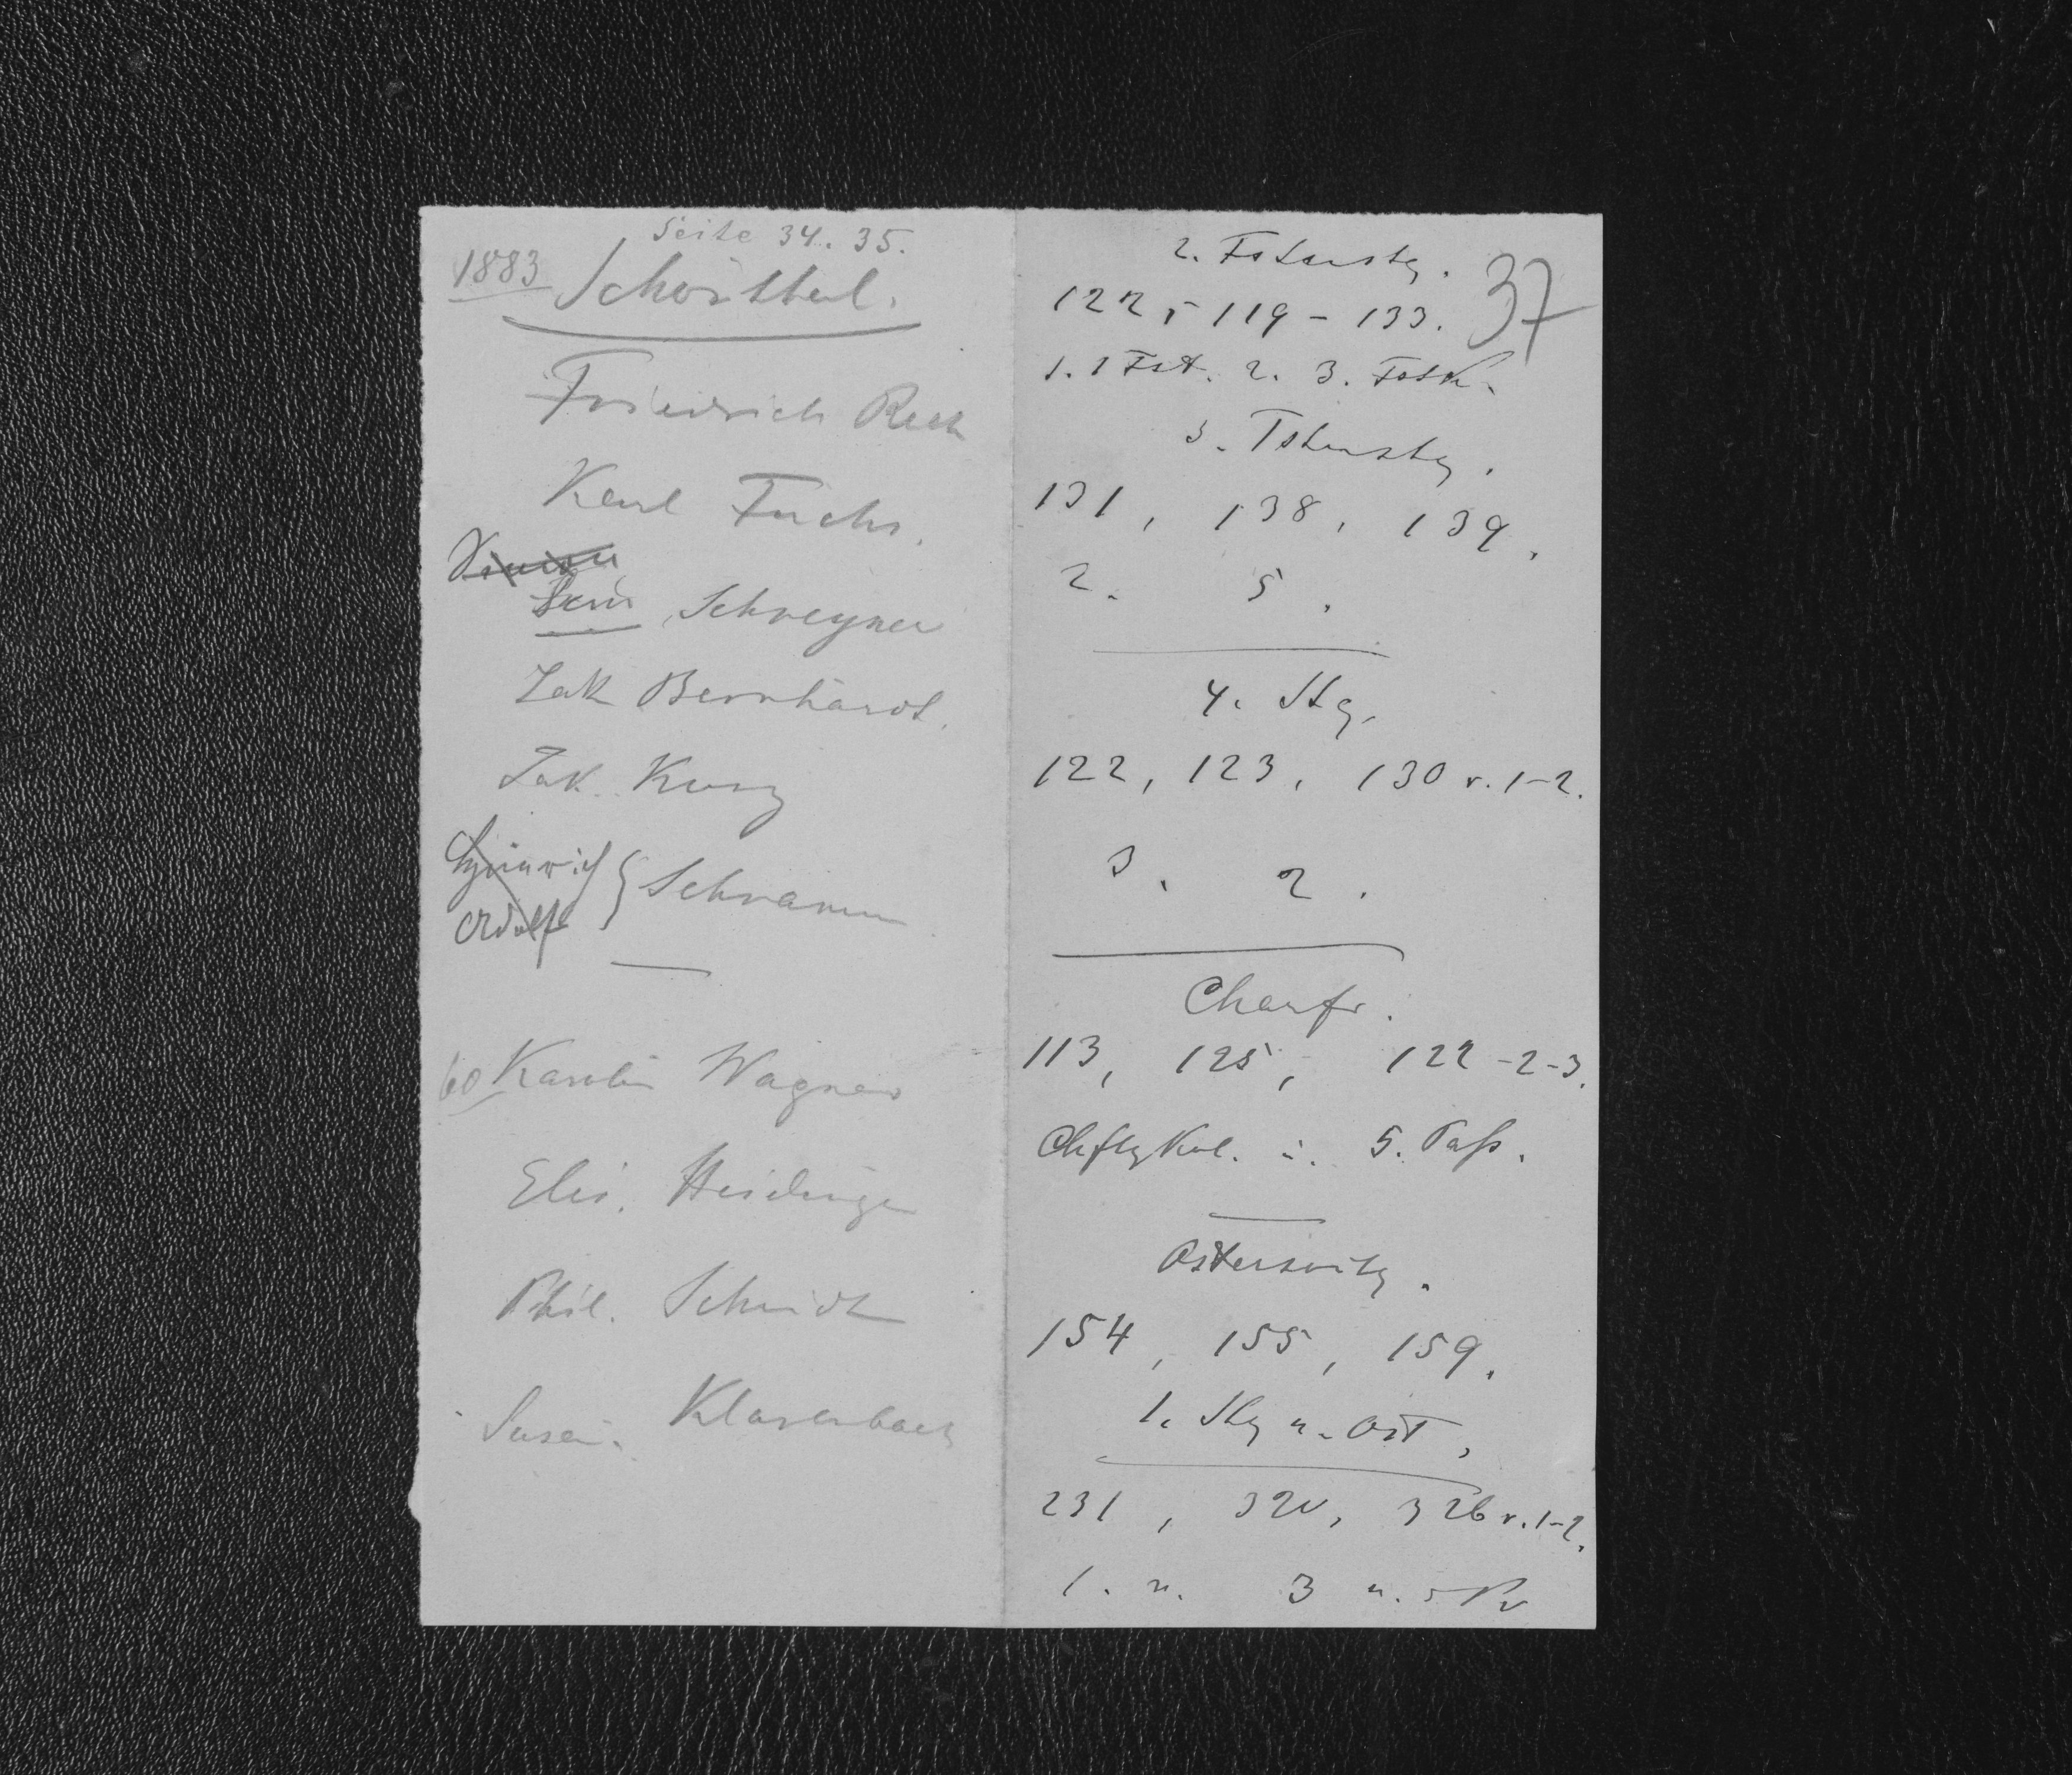 Seite 34. 35.
1883 Schönthal.
Friedrich Rech
Karl Fuchs.
Schreyner
Jak Bernhardt.
Jak. Kurz
Heinrich
Adolf } Schramm
60 Karolin Wagner
Elis. Heidinger
Phil. Schmidt
Susan. Klarenbach
2. Fstensty.
37
122, 119 - 133.
1. 1 Fst. 2. 3. Fstk.
3. Fstensty.
131, 138, 139.
2. 5.
4. Stg.
122, 123, 130 v. 1-2.
3. 2.
Charfr.
113, 125, 122 -2-3.
5. Pass.
154, 155, 159.
1. Stg n. Ost,
231, 320, 326 v. 1-2.
1. u. 3 u.